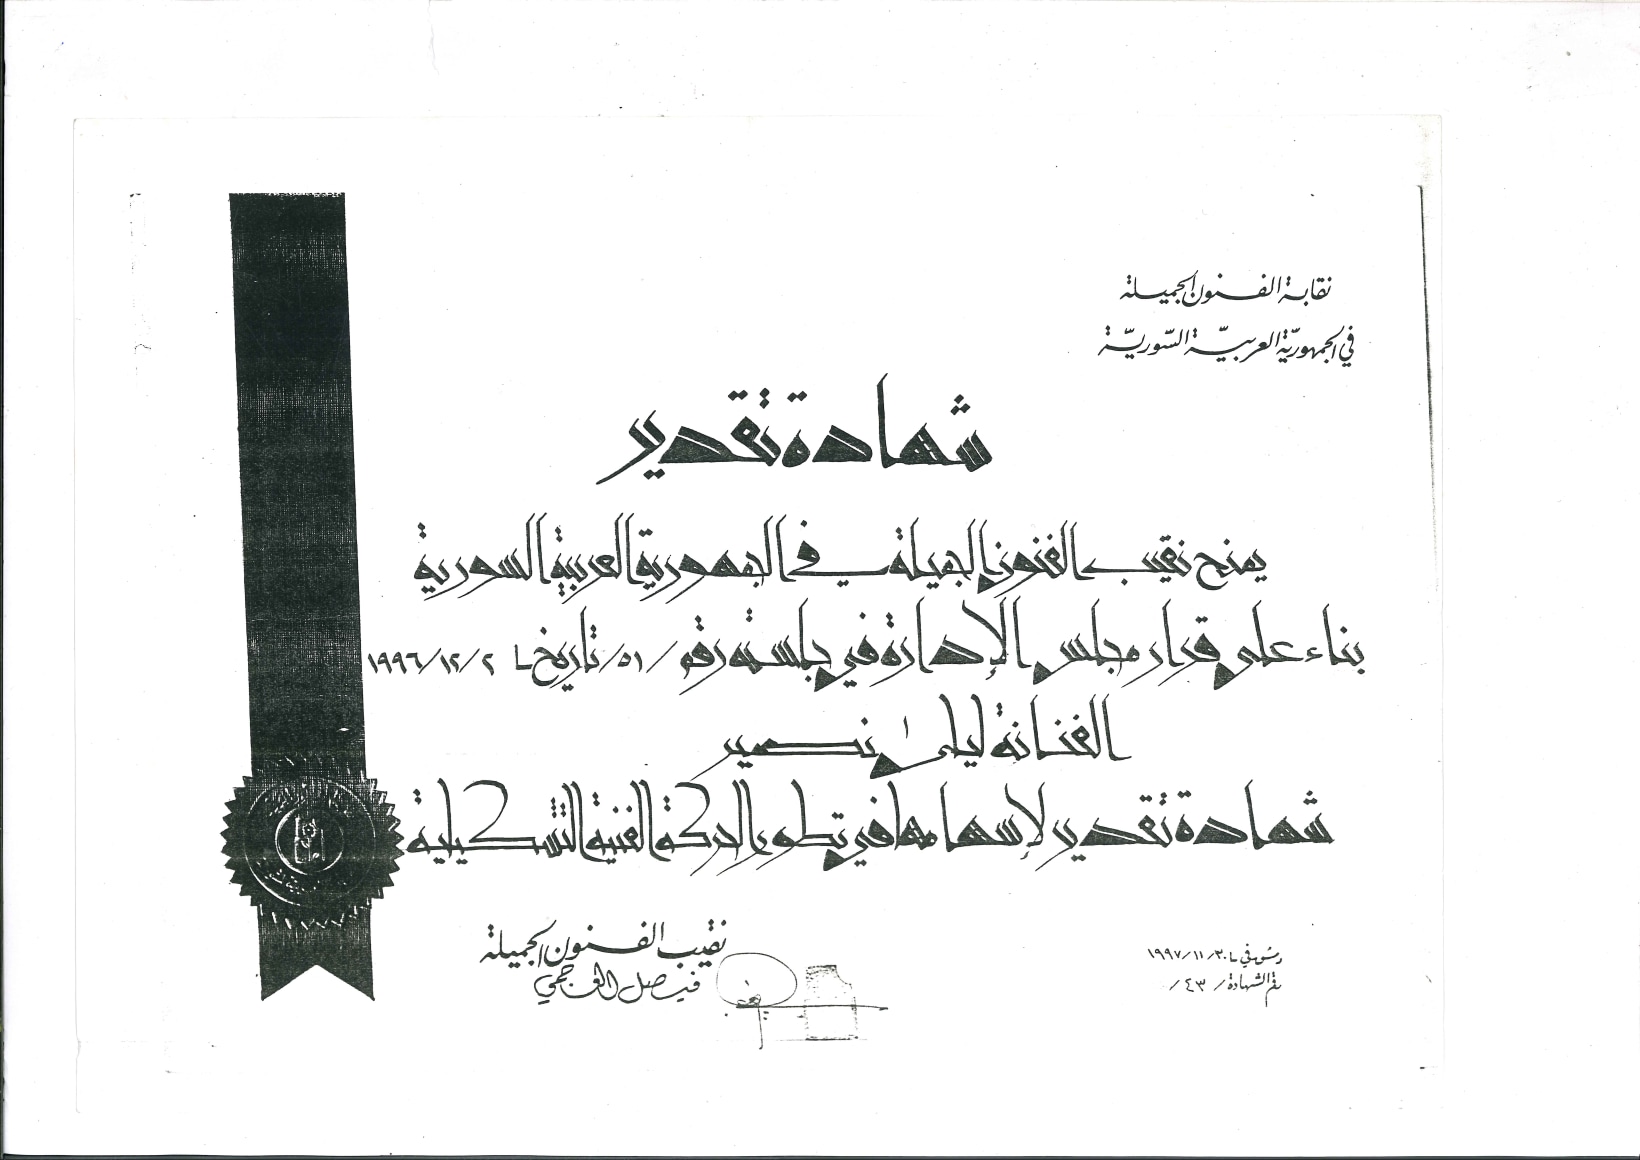 نقابة الفنون الجميلة
في الجمهوريّة العربيّة السّوريّة
شهادة تقدير
يمنح نقيب الفنون الجميلة في الجمهورية العربية السورية
بناء على قرار مجلس الإدارة في جلسته رقم /٥١/ تاريخ ٢/١٢/١٩٩٦
الفنانة ليلى نصير
شهادة تقدير لإسهامها في تطوير الحركة الفنية التشكيلية
نقيب الفنون الجميلة
فيصل العجمي
دمشق في ٣٠/١١/١٩٩٧
رقم الشهادة /٤٣/